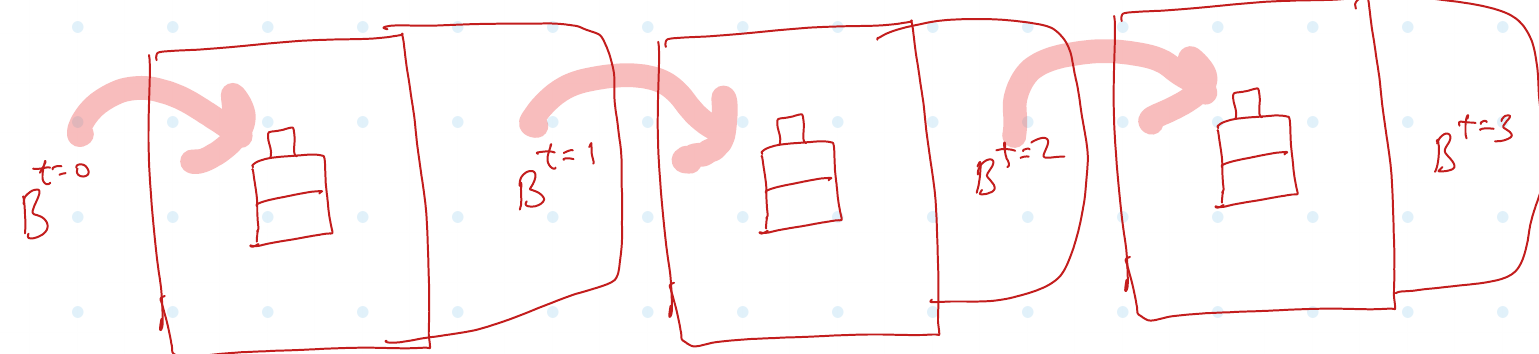 B^{t=0}
B^{t=1}
B^{t=2}
B^{t=3}